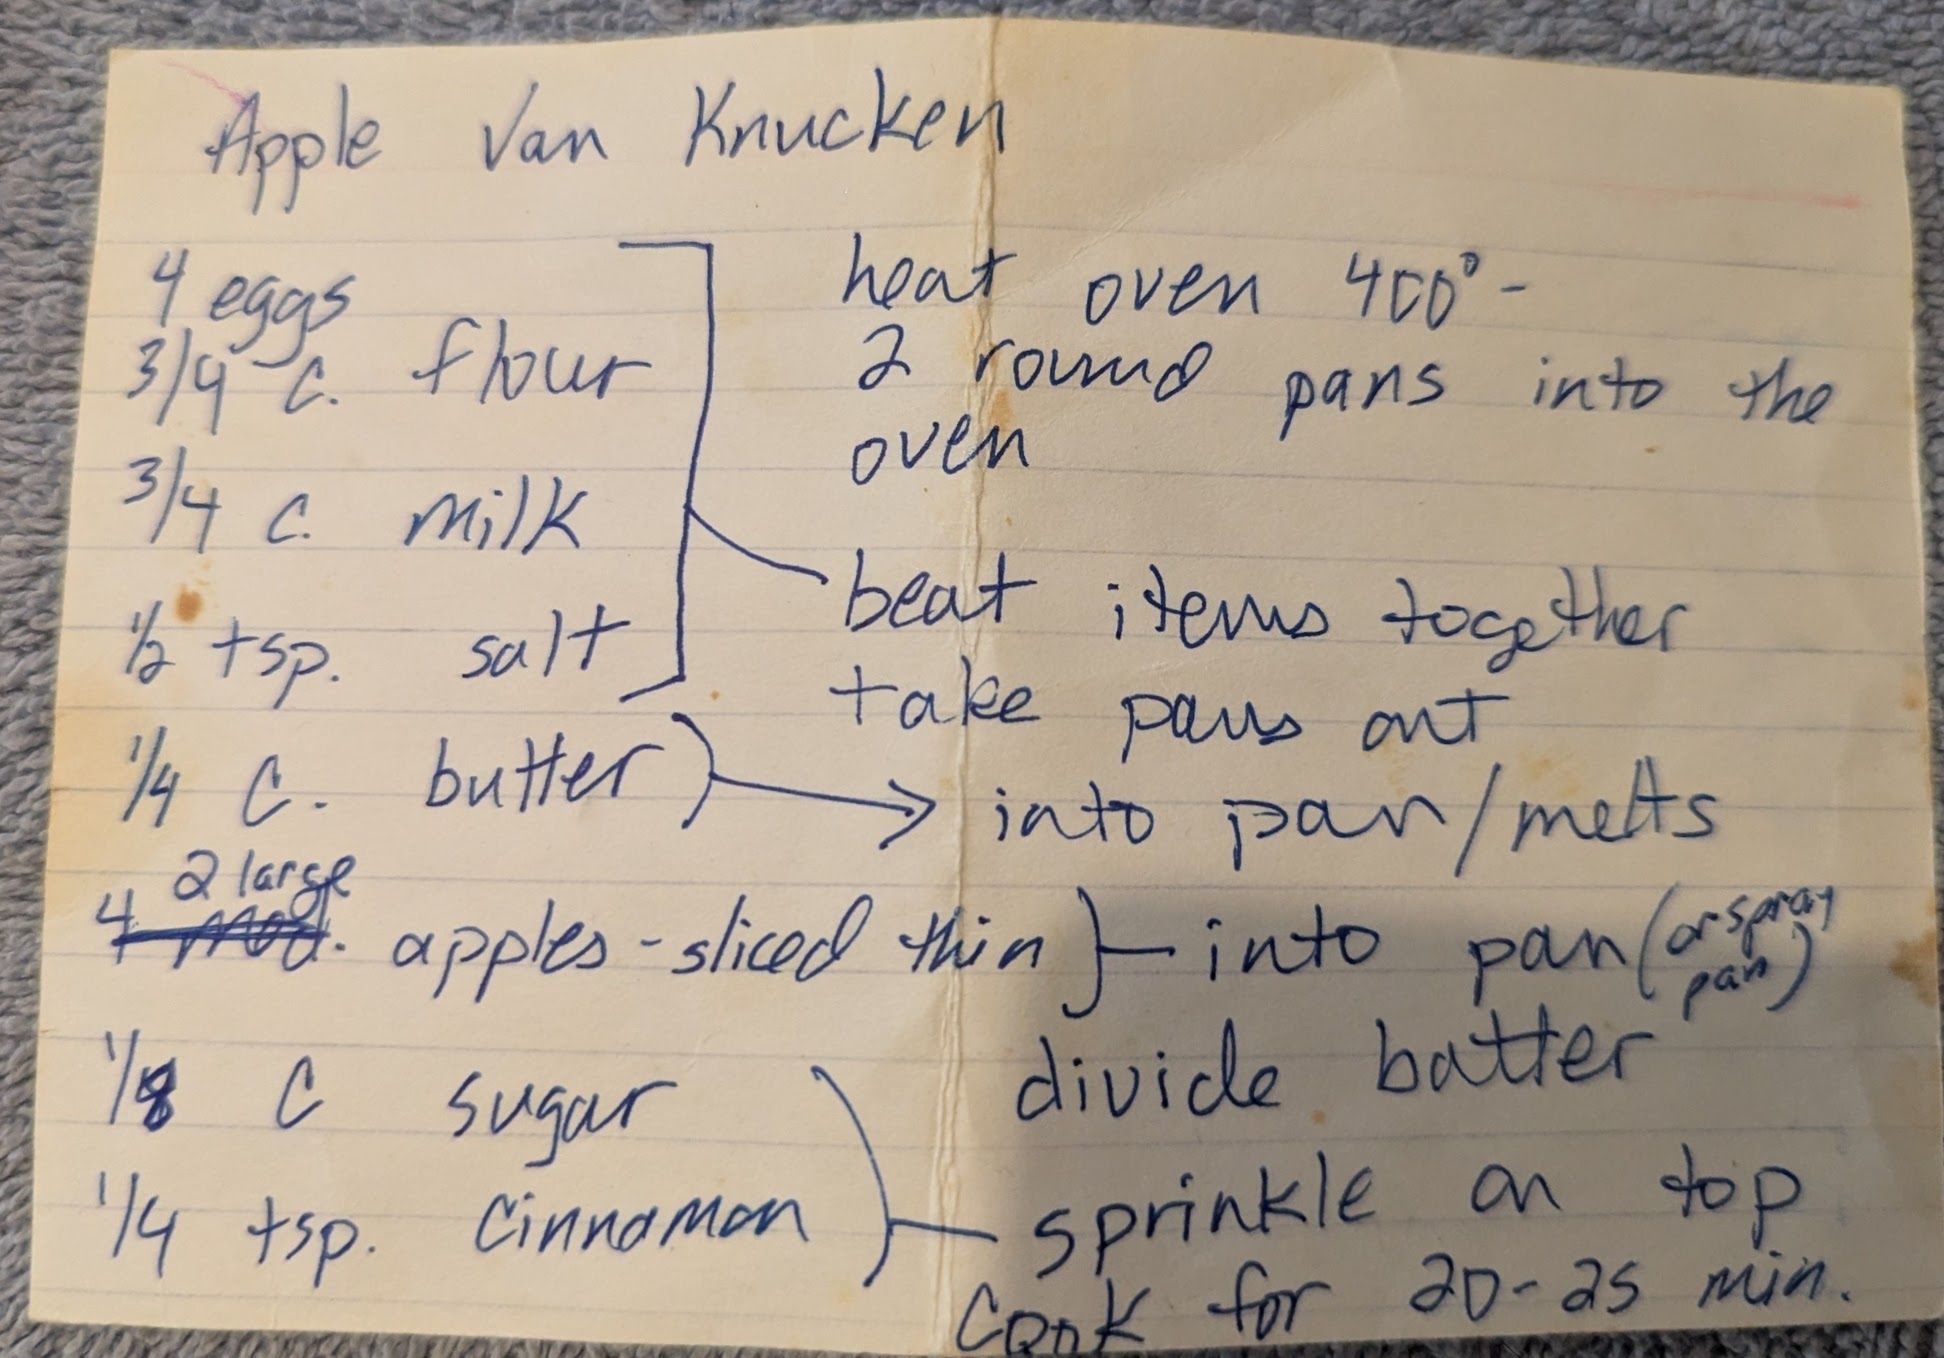 Apple Van Knucken
4 eggs
3/4 c. flour
3/4 c. milk
1/2 tsp. salt
1/4 c. butter
2 large
4 med. apples - sliced thin
1/8 c sugar
1/4 tsp. cinnamon
heat oven 400° -
2 round pans into the
oven
beat items together
take pans out
into pan/melts
into pan (or spray
pan)
divide batter
sprinkle on top
cook for 20-25 min.